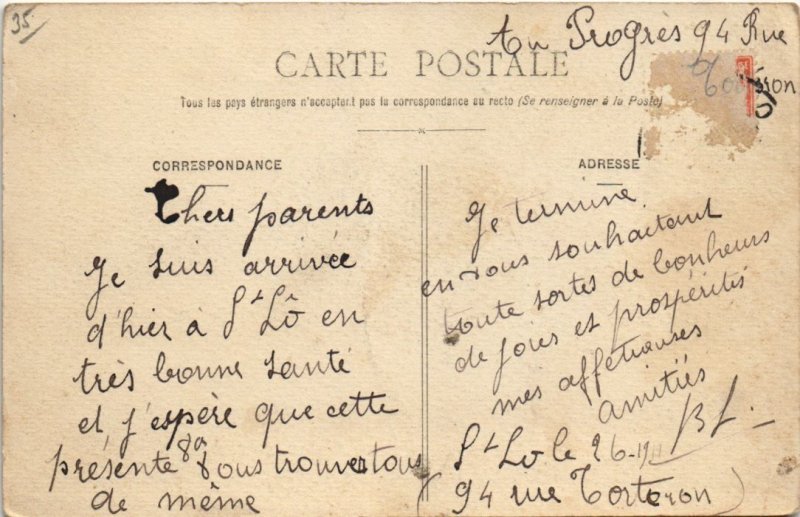 35
Au Progrès 94 Rue
CARTE POSTALE
Tous les pays étrangers n'acceptent pas la correspondance au recto (Se renseigner à la Poste)
CORRESPONDANCE
Chers parents
Je suis arrivée
d'hier à St Lô en
très bonne santé
et j'espère que cette
présente va vous trouver tous
de même
ADRESSE
Je termine
en vous souhaitant
toute sortes de bonheurs
de joies et prospérités
mes affétieuses
amitiés
St Lô le 26-
(94 rue Torteron)